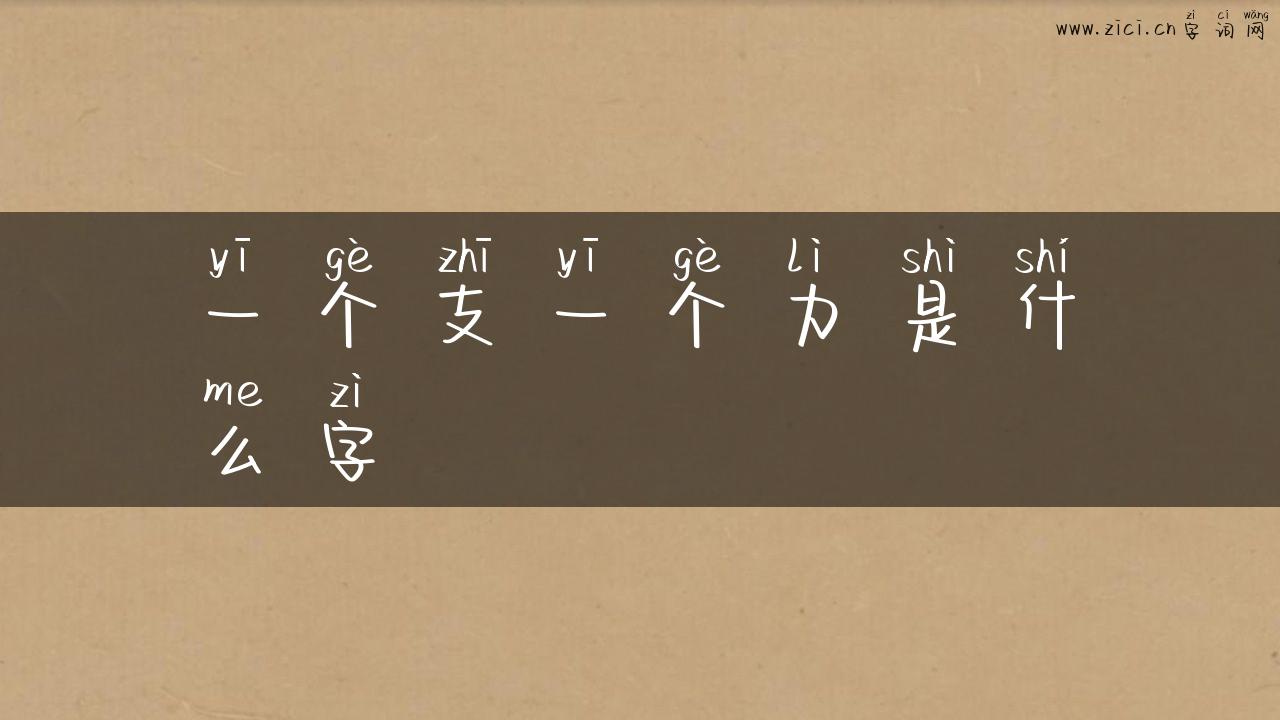 www.zici.cn zì cí wǎng
字词网
yī gè zhī yī gè lì shì shí
一个支一个力是什
me zì
么字